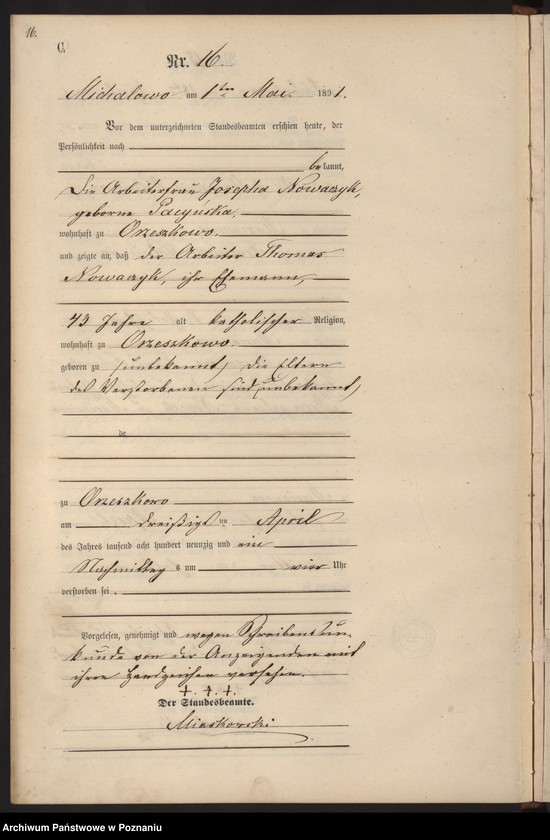 16.
C.
Nr. 16.
Michalowo am 1ten Mai 1891.
Vor dem unterzeichneten Standesbeamten erschien heute, der
Persönlichkeit nach
bekannt,
die Arbeiterfrau Josepha Nowaczyk,
geborne Pacyńska,
wohnhaft zu Orzeszkowo.
und zeigte an, daß der Arbeiter Thomas
Nowaczyk, ihr Ehemann,
73 Jahre alt katholischer Religion,
wohnhaft zu Orzeszkowo
geboren zu (unbekannt) die Eltern
des Verstorbenen sind (unbekannt)
de
zu Orzeszkowo
am dreißigsten April
des Jahres tausend acht hundert neunzig und ein
Nachmittag s um vier Uhr
verstorben sei.
Vorgelesen, genehmigt und wegen Schreibensun-
kunde von der Anzeigenden mit
ihren Handzeichen versehen.
+. +. +.
Der Standesbeamte.
Miaskowski
Archiwum Państwowe w Poznaniu